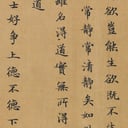 欲豈能生欲既不生
常靜常清靜矣如
雖名得道實無所得
士好爭上德不德下